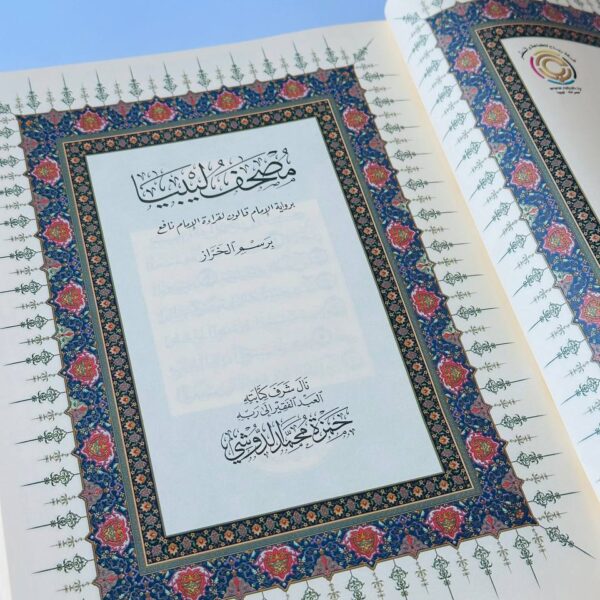 مصحف ليبيا
برواية الإمام قالون لقراءة الإمام نافع
برسم الخراز
نال شرف كتابته
العبد الفقير إلى ربه
حمزة محمد الدروشي